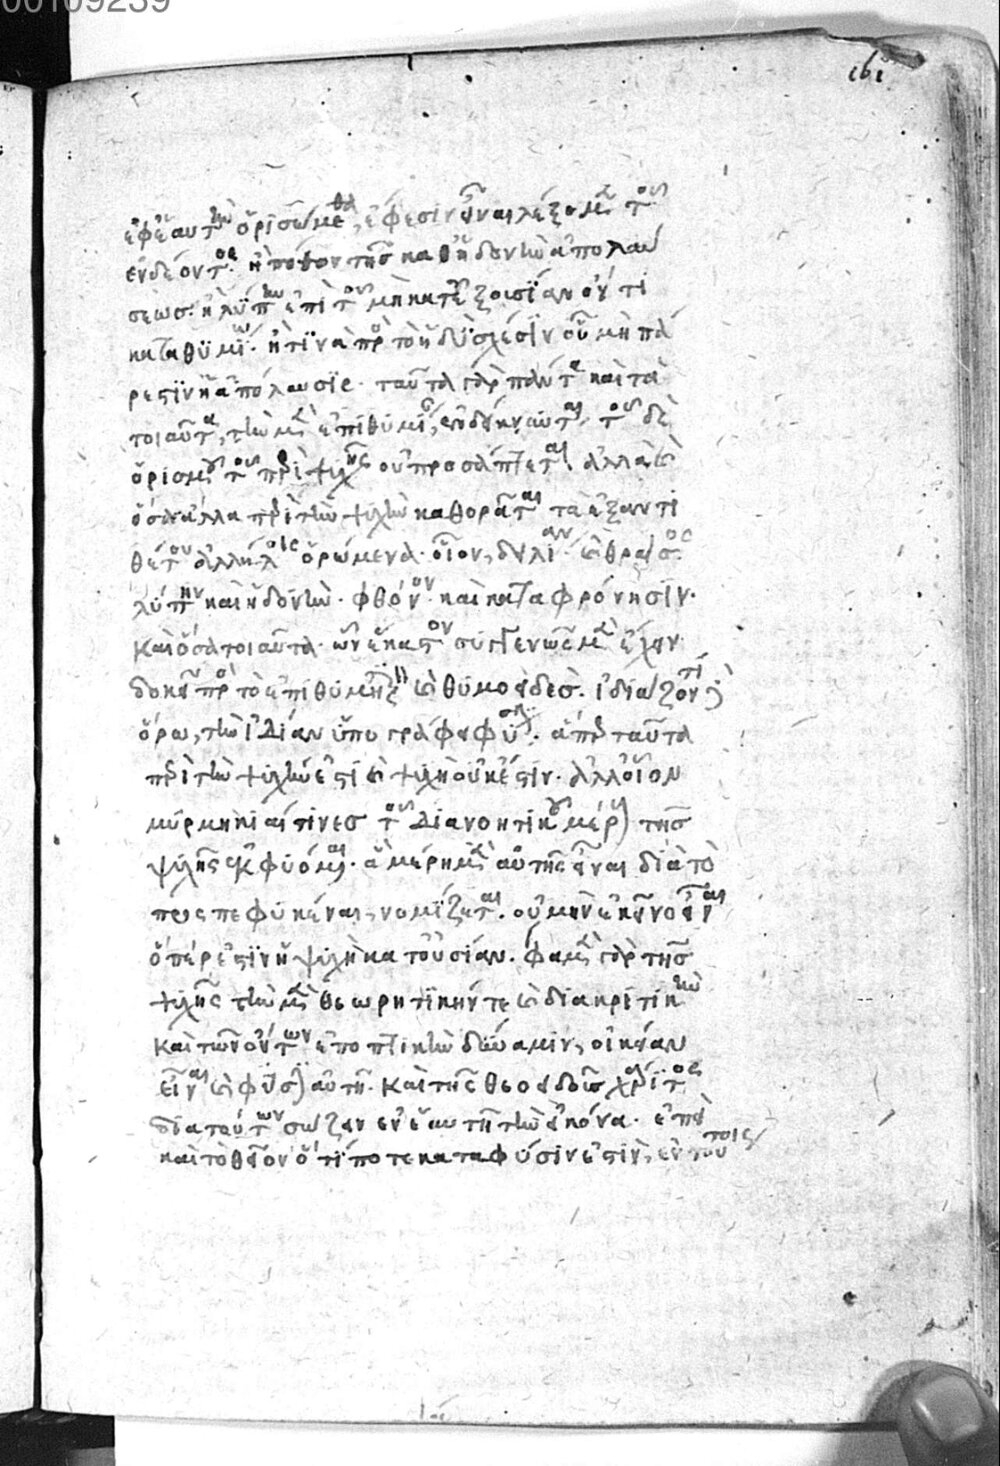 00109239
161
ἐφ' ἑαυτὴν ὁρισώμεθα, ἔφεσιν εἶναι λέξομεν τοῦ
ἐνδέοντος. ἢ πόθον τῆς καθ' ἡδονὴν ἀπολαύ
σεως. ἢ λύπην ἐπὶ τοῦ μὴ κατ' ἐξουσίαν ὄντι
καταθυμίου. ἤ τινα πρὸς τὸ ἡδὺ σχέσιν οὗ μὴ πά
ρεστιν ἡ ἀπόλαυσις. ταῦτα γὰρ πάντα καὶ τὰ
τοιαῦτα, τὴν μὲν ἐπιθυμίαν ἐνδείκνυται. τοῦ δὲ
ὁρισμοῦ τοῦ περὶ ψυχῆς οὐ προσάπτεται. ἀλλὰ καὶ
ὅσα ἄλλα περὶ τὴν ψυχὴν καθορᾶται τὰ ἐξ ἀντι
θέτου ἀλλήλοις ὁρώμενα. οἷον, δειλίαν καὶ θράσος.
λύπην καὶ ἡδονὴν. φόβον καὶ καταφρόνησιν.
καὶ ὅσα τοιαῦτα. ὧν ἕκαστον συγγενῶς μὲν ἔχειν
δοκεῖ πρὸς τὸ ἐπιθυμητικὸν ἢ καὶ θυμοειδές. ἰδιάζοντι δὲ
ὅρω, τὴν ἰδίαν ὑπογράφει φύσιν. ἅπερ ταῦτα
περὶ τὴν ψυχήν ἐστι καὶ ψυχὴ οὐκ ἔστιν. ἀλλ' οἷον
μυρμηκίαι τινες τοῦ διανοητικοῦ μέρους τῆς
ψυχῆς ἐκφυόμεναι. ἃ μέρη μὲν αὐτῆς εἶναι διὰ τὸ
προσπεφυκέναι, νομίζεται. οὐ μὴν ἐκεῖνο εἶναι
ὅπέρ ἐστιν ἡ ψυχὴ κατ' οὐσίαν. φαμὲν γὰρ τῆς
ψυχῆς τὴν μὲν θεωρητικήν τε καὶ διακριτικὴν
καὶ τῶν ὄντων ἐποπτικὴν δύναμιν, οἰκείαν
εἶναι καὶ φύσει αὐτῇ. καὶ τῆς θεοειδοῦς χάριτος
διὰ τούτων σώζειν ἐν ἑαυτῇ τὴν εἰκόνα. ἐπεὶ
καὶ τὸ θεῖον ὅ τί ποτε κατὰ φύσιν ἐστὶν, ἐν τούτοις